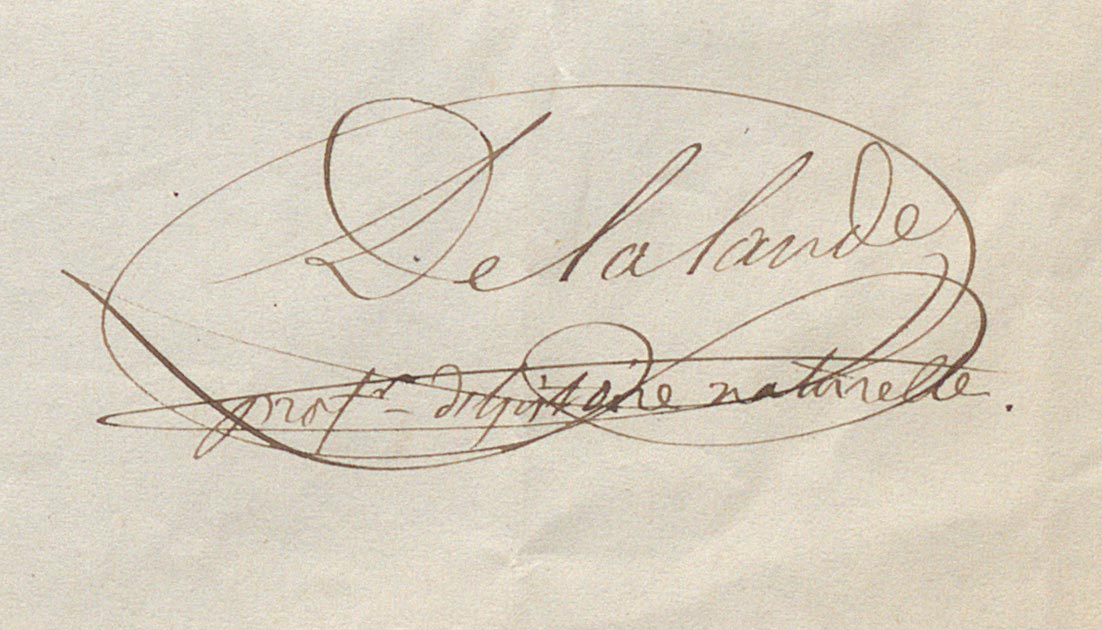 De la lande
profr. d'histoire naturelle.